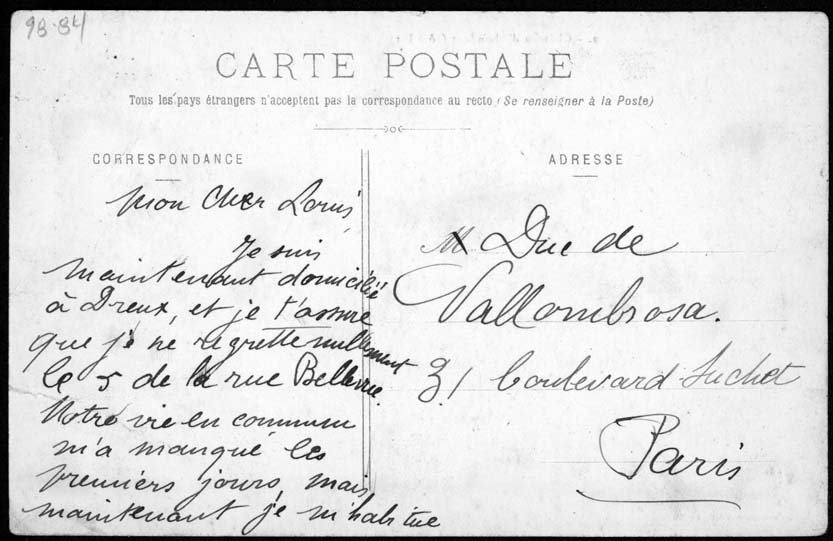 98-84
CARTE POSTALE
Tous les pays étrangers n'acceptent pas la correspondance au recto (Se renseigner à la Poste)
CORRESPONDANCE
Mon Cher Louis,
Je suis
maintenant domicilié
à Dreux, et je t'assure
que je ne regrette nullement
le 5 de la rue Bellevue.
Notre vie en commun
m'a manqué les
premiers jours, mais
maintenant je m'habitue
ADRESSE
M Duc de
Vallombrosa.
31 boulevard Suchet
Paris